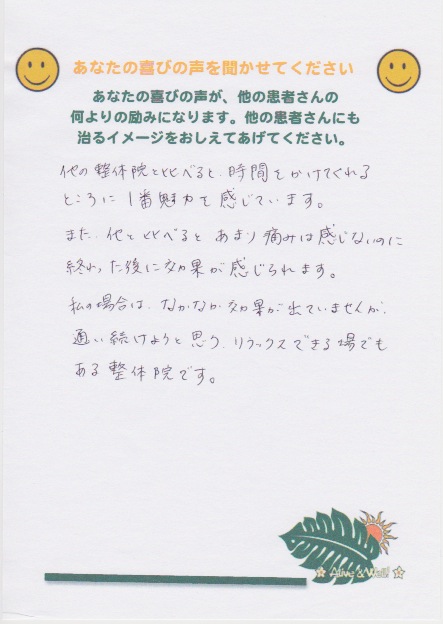 あなたの喜びの声を聞かせてください
あなたの喜びの声が、他の患者さんの
何よりの励みになります。他の患者さんにも
治るイメージをおしえてあげてください。
他の整体院と比べると、時間をかけてくれる
ところに1番魅力を感じています。
また、他と比べるとあまり痛みは感じないのに
終わった後に効果が感じられます。
私の場合は、なかなか効果が出ていませんが、
通い続けようと思う、リラックスできる場でも
ある整体院です。
Alive & Well!